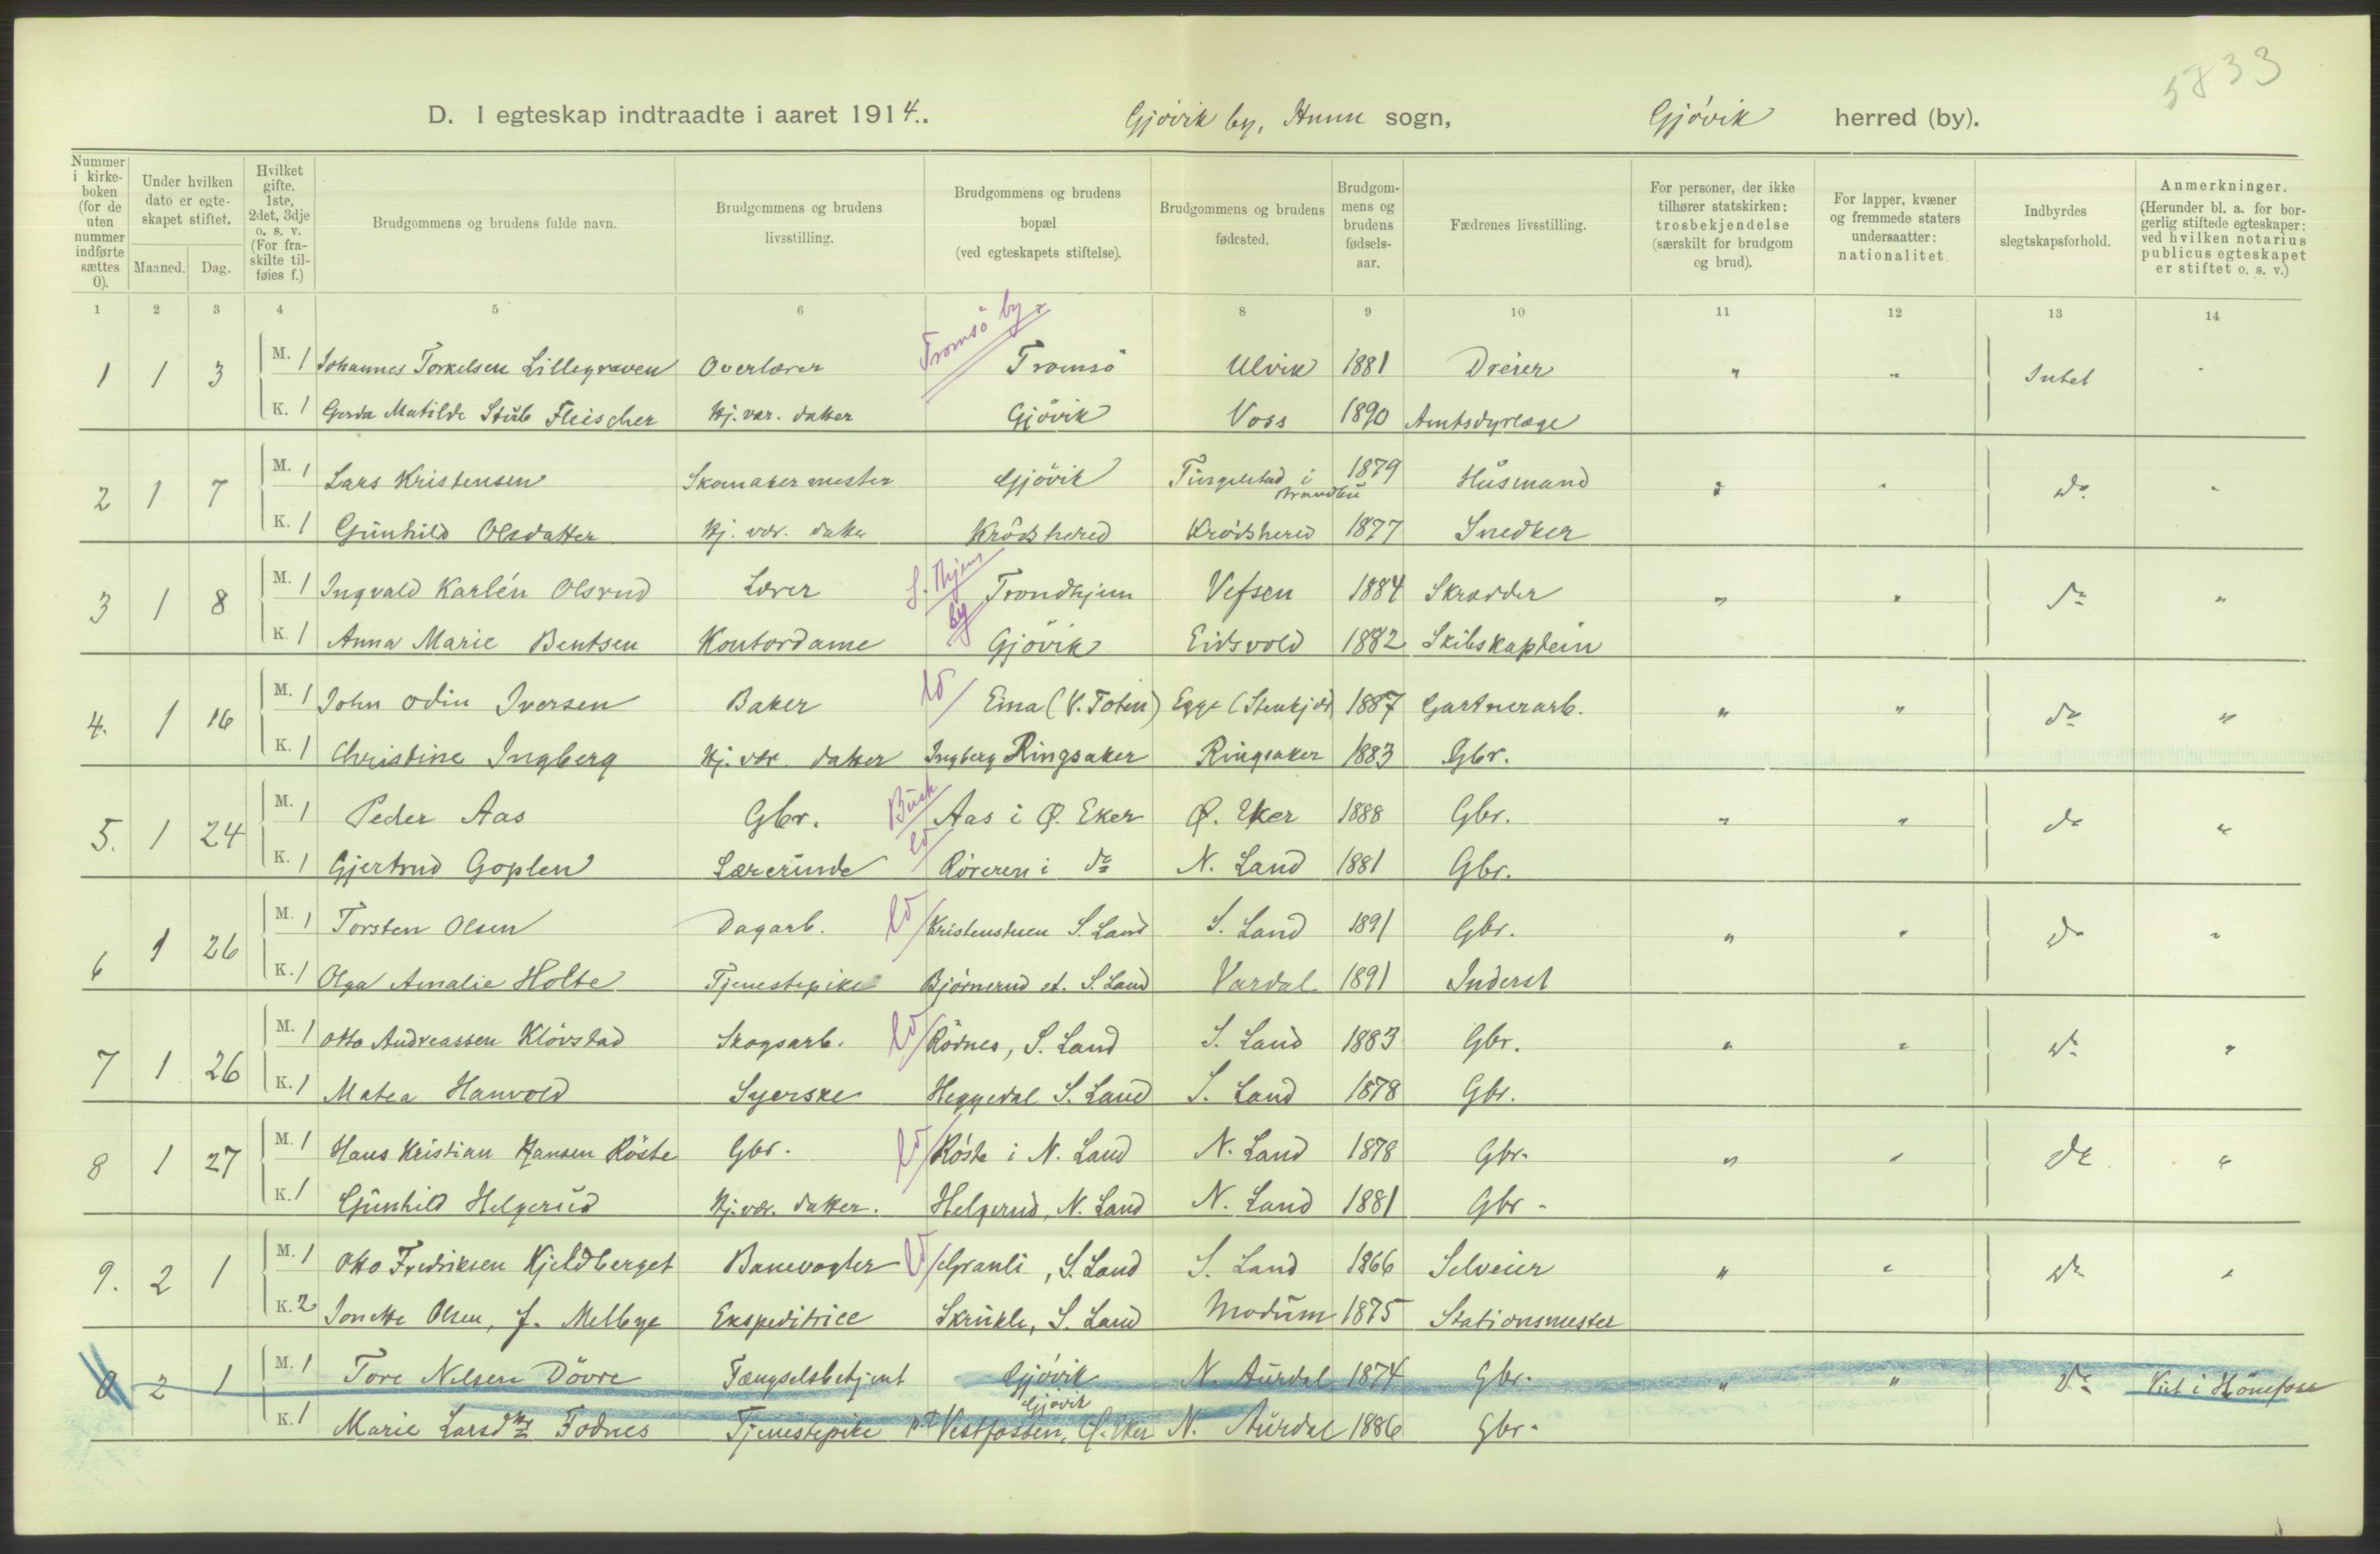 5833
D. I egteskap indtraadte i aaret 1914. Gjövik by, Hunn sogn, Gjövik herred (by).
Nummer i kirke-boken (for de uten nummer indførte sættes 0).
Under hvilken dato er egte-skapet stiftet.
Maaned. Dag.
Hvilket gifte. 1ste, 2det, 3dje o. s. v. (For fra-skilte til-føies f.)
Brudgommens og brudens fulde navn.
Brudgommens og brudens livsstilling.
Brudgommens og brudens bopæl (ved egteskapets stiftelse).
Brudgommens og brudens fødested.
Brudgom-mens og brudens fødsels-aar.
Fædrenes livsstilling.
For personer, der ikke tilhører statskirken: trosbekjendelse (særskilt for brudgom og brud).
For lapper, kvæner og fremmede staters undersaatter: nationalitet.
Indbyrdes slegtskapsforhold.
Anmerkninger. (Herunder bl. a. for bor-gerlig stiftede egteskaper: ved hvilken notarius publicus egteskapet er stiftet o. s. v.)
1 2 3 4 5 6 8 9 10 11 12 13 14
Tromsö by
1 1 3 M. 1 Johannes Torkelsen Lillegraven Overlærer Tromsö Ulvik 1881 Dreier " " Intet "
K. 1 Gerda Matilde Stub Fleischer Hj. vær. datter Gjövik Voss 1890 Amtsdyrlæge
2 1 7 M. 1 Lars Kristensen Skomakermester Gjövik Tingelstad i Brandbu 1879 Husmand " " do "
K. 1 Gunhild Olsdatter Hj. vær. datter Krödshered Krödshered 1877 Snedker
S. Thjem by
3 1 8 M. 1 Ingvald Karlén Olsrud Lærer Trondhjem Vefsen 1884 Skrædder " " do "
K. 1 Anna Marie Bentsen Kontordame Gjövik Eidsvold 1882 Skibskaptein
4. 1 16 M. 1 John Odin Iversen Baker Eina (V. Toten) Egge (Stenkjær) 1887 Gartnerarb. " " do "
K. 1 Christine Ingberg Hj. vær. datter Ingberg Ringsaker Ringsaker 1883 Gbr.
Busk
5. 1 24 M. 1 Peder Aas Gbr. Aas i Ø. Eker Ø. Eker 1888 Gbr. " " do "
K. 1 Gjertrud Goplen Lærerinde Röreren i do N. Land 1881 Gbr.
6 1 26 M. 1 Torsten Olsen Dagarb. Kristenstuen S. Land S. Land 1891 Gbr. " " do "
K. 1 Olga Amalie Holte Tjenestepike Björnerud et. S. Land Vardal 1891 Inderst
7 1 26 M. 1 Otto Andreassen Klövstad Skogsarb. Rödnes, S. Land S. Land 1883 Gbr. " " do "
K. 1 Matea Hanvold Syerske Heggedal S. Land S. Land 1878 Gbr.
8 1 27 M. 1 Hans Kristian Hansen Röste Gbr. Röste i N. Land N. Land 1878 Gbr. " " do "
K. 1 Gunhild Helgerud Hj. vær. datter. Helgerud, N. Land N. Land 1881 Gbr.
9. 2 1 M. 1 Otto Fredriksen Kjeldberget Banevogter Granli, S. Land S. Land 1866 Selveier " " do "
K. 2 Jonette Olsen, f. Melbye Ekspeditrice Skrukli, S. Land Modum 1875 Stationsmester
0 2 1 M. 1 Tore Nilsen Dövre Fængselsbetjent Gjövik N. Aurdal 1874 Gbr. " " do Viet i Hönefoss
Gjövik
K. 1 Marie Larsdtr Fodnes Tjenestepike p.t. Vestfossen, Ø. Eker N. Aurdal 1886 Gbr.